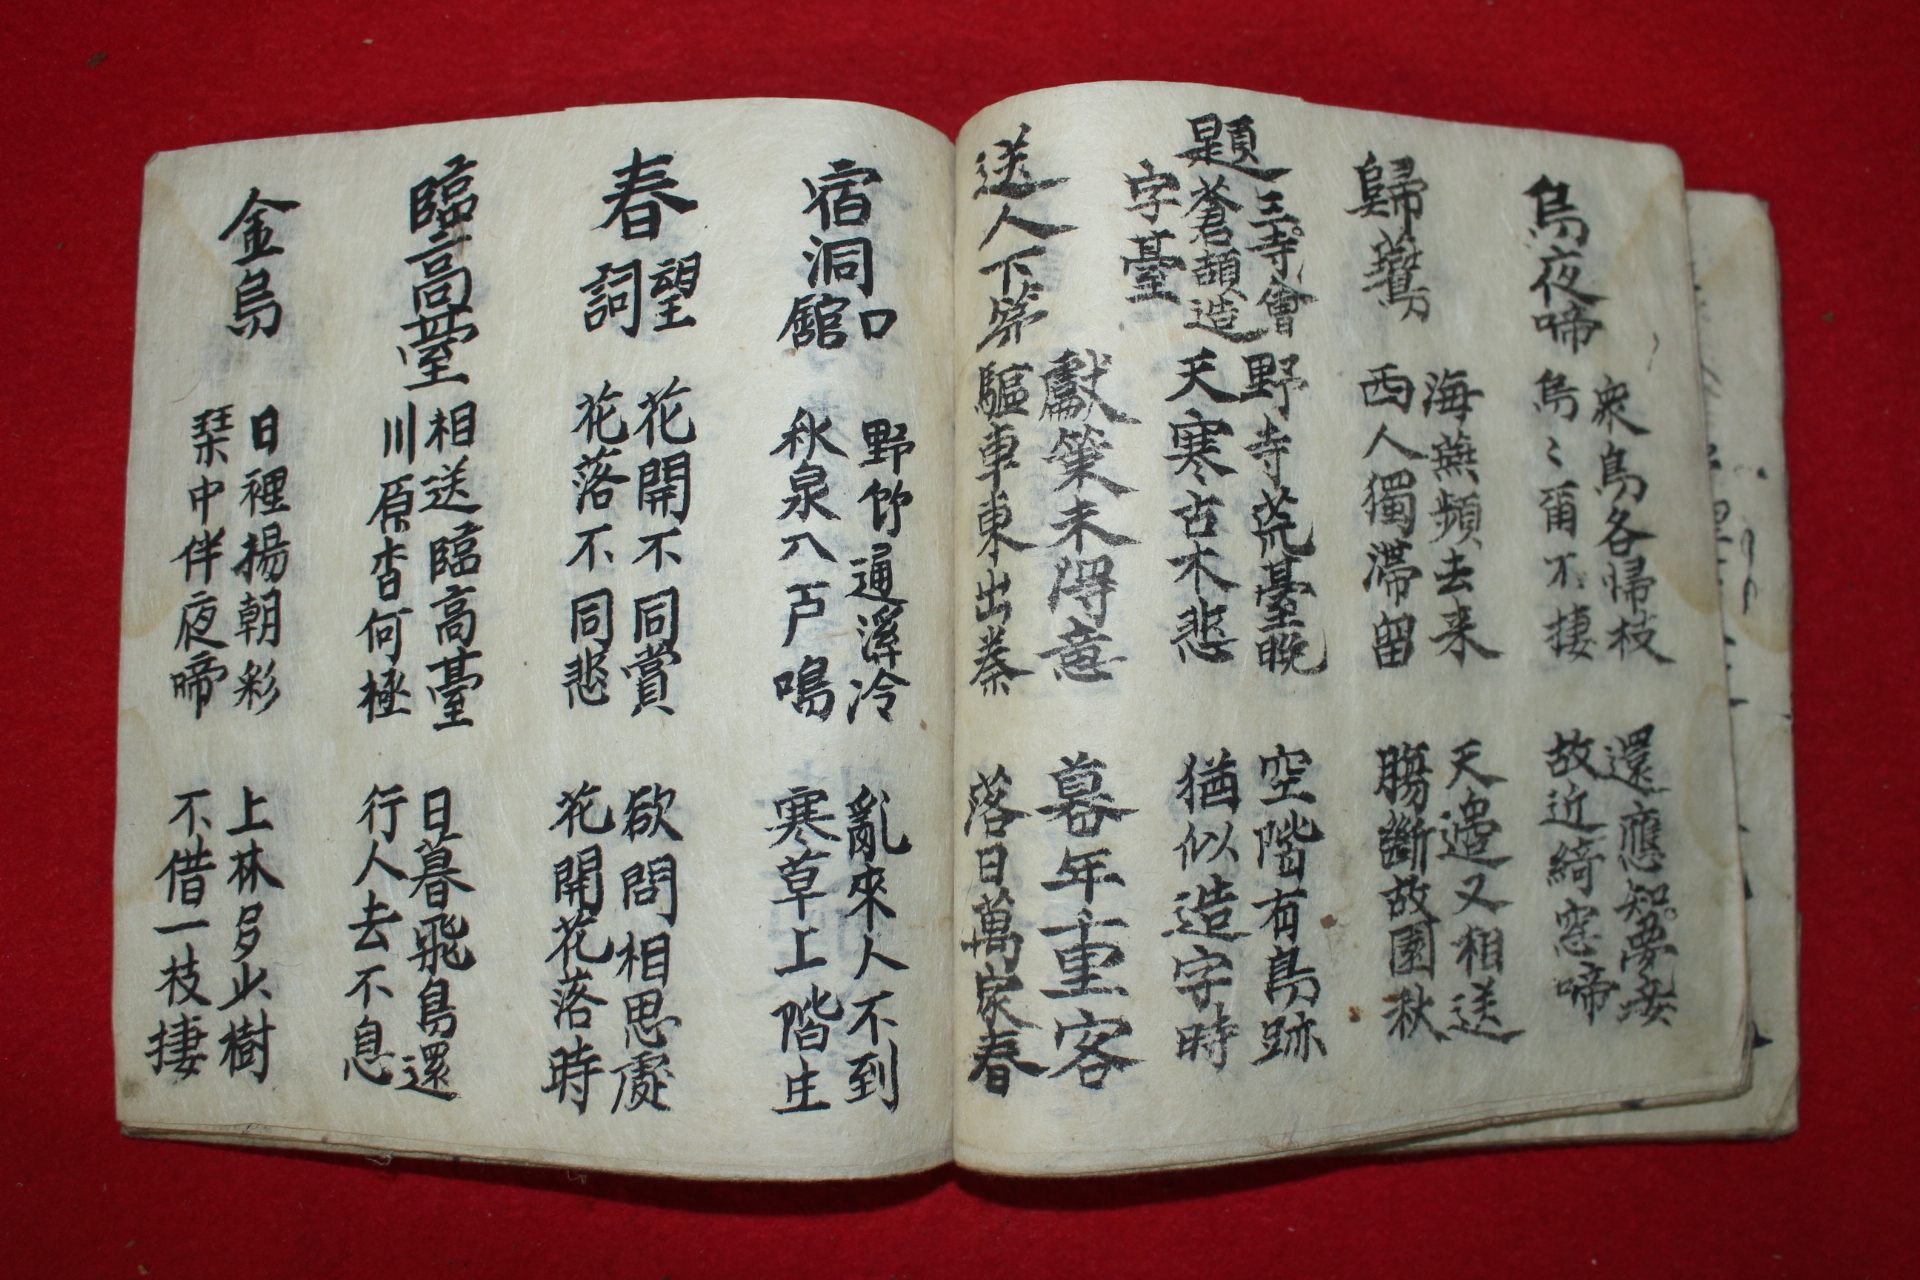 烏夜啼
衆鳥各帰枝
烏〻爾不捿
還應知夢妾
故近綺窓啼
歸鷰
海蕪頻去来
西人獨滯留
天邉又相送
腸斷故園秋
題三寺會
蒼頡造
字臺
野寺荒臺晚
天寒古木悲
空階有鳥跡
猶似造字時
送人下第
獻策未得意
驅車東出秦
暮年千里客
落日萬家春
宿洞口
館
野竹通溪冷
秋泉入戶鳴
亂來人不到
寒草上階生
春望
詞
花開不同賞
花落不同悲
欲問相思處
花開花落時
臨高臺
相送臨高臺
川原杳何極
日暮飛鳥還
行人去不息
金烏
日裡揚朝彩
琹中伴夜啼
上林多少樹
不借一枝捿